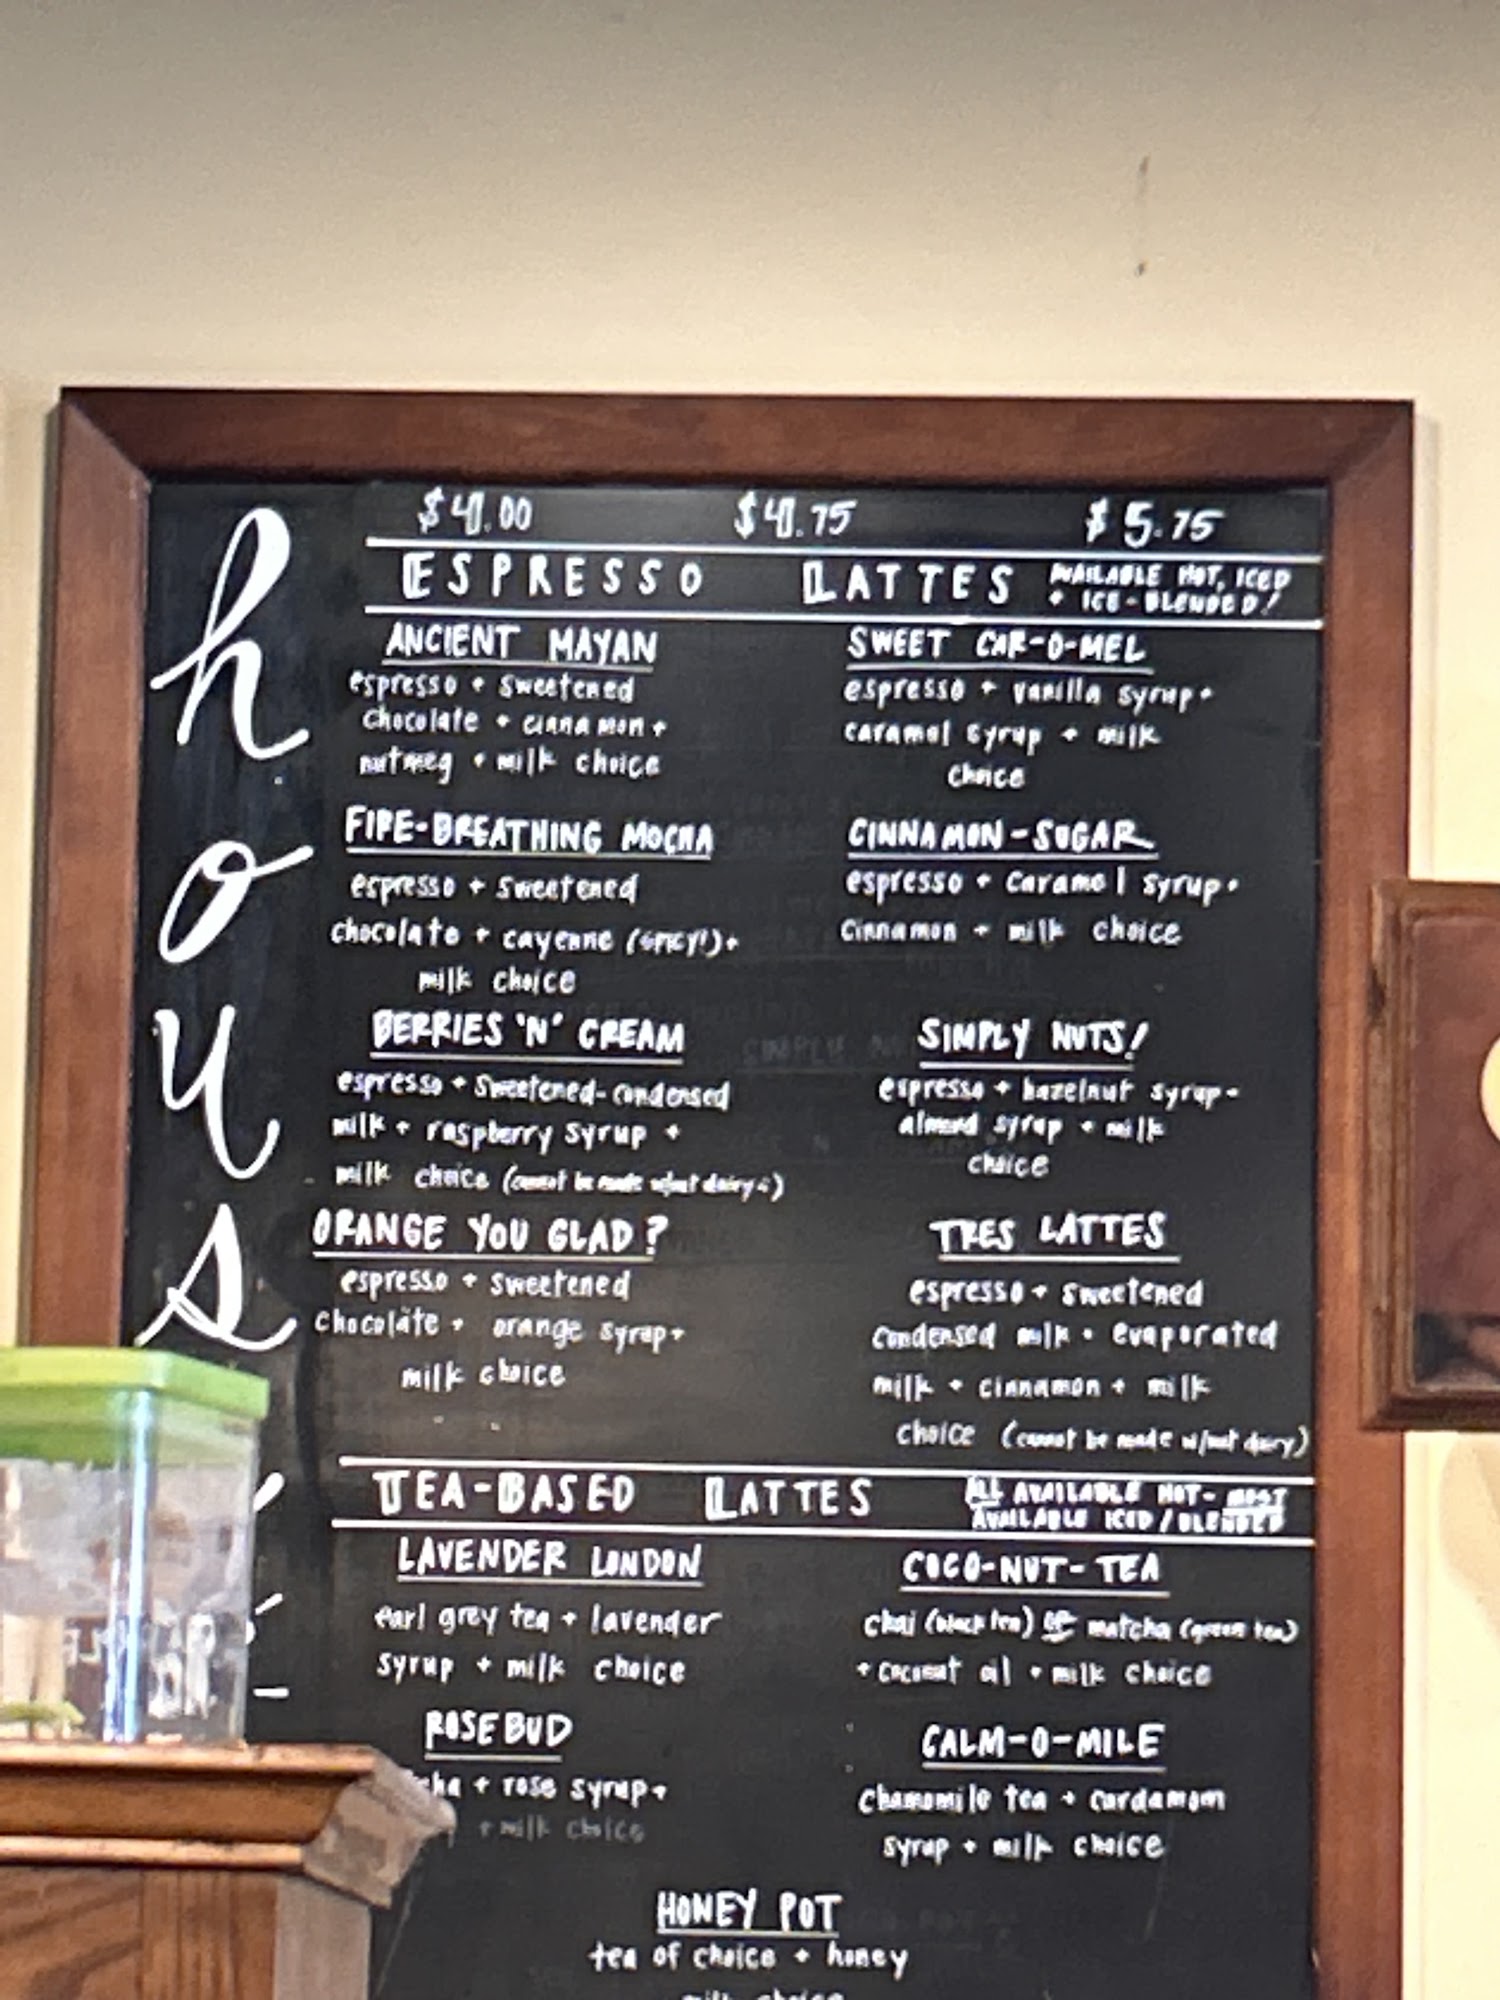 $4.00 $4.75 $5.75
ESPRESSO LATTES
AVAILABLE HOT, ICED
+ ICE-BLENDED!
ANCIENT MAYAN
espresso + sweetened
chocolate + cinnamon +
nutmeg + milk choice
SWEET CAR-O-MEL
espresso + vanilla syrup +
caramel syrup + milk
choice
FIRE-BREATHING MOCHA
espresso + sweetened
chocolate + cayenne (SPICY!) +
milk choice
CINNAMON-SUGAR
espresso + caramel syrup +
cinnamon + milk choice
BERRIES 'N' CREAM
espresso + sweetened-condensed
milk + raspberry syrup +
milk choice (cannot be made w/out dairy)
SIMPLY NUTS!
espresso + hazelnut syrup +
almond syrup + milk
choice
ORANGE YOU GLAD?
espresso + sweetened
chocolate + orange syrup +
milk choice
TRES LATTES
espresso + sweetened
condensed milk + evaporated
milk + cinnamon + milk
choice (cannot be made w/out dairy)
TEA-BASED LATTES
ALL AVAILABLE HOT- MOST
AVAILABLE ICED/BLENDED
LAVENDER LONDON
earl grey tea + lavender
syrup + milk choice
COCO-NUT-TEA
chai (black tea) OR matcha (green tea)
+ coconut oil + milk choice
ROSEBUD
cha + rose syrup +
+ milk choice
CALM-O-MILE
chamomile tea + cardamom
syrup + milk choice
HONEY POT
tea of choice + honey
milk choice
hous